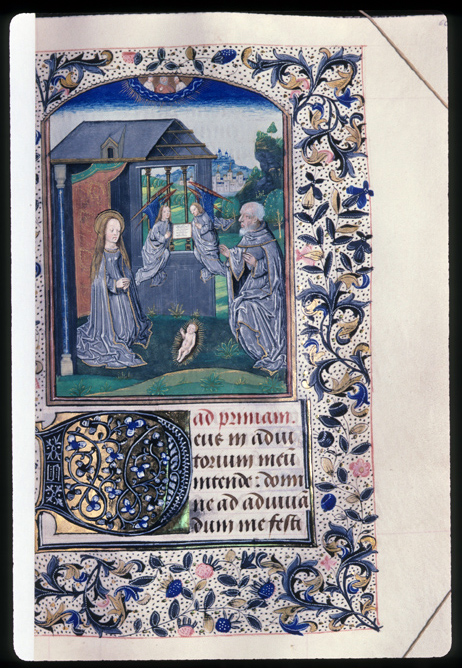 ad primam.
Deus in adiu
torium meū
intende: domi
ne ad adiuua
dum me festi